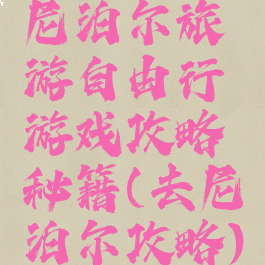 尼泊尔旅
游自由行
游戏攻略
秘籍(去尼
泊尔攻略)